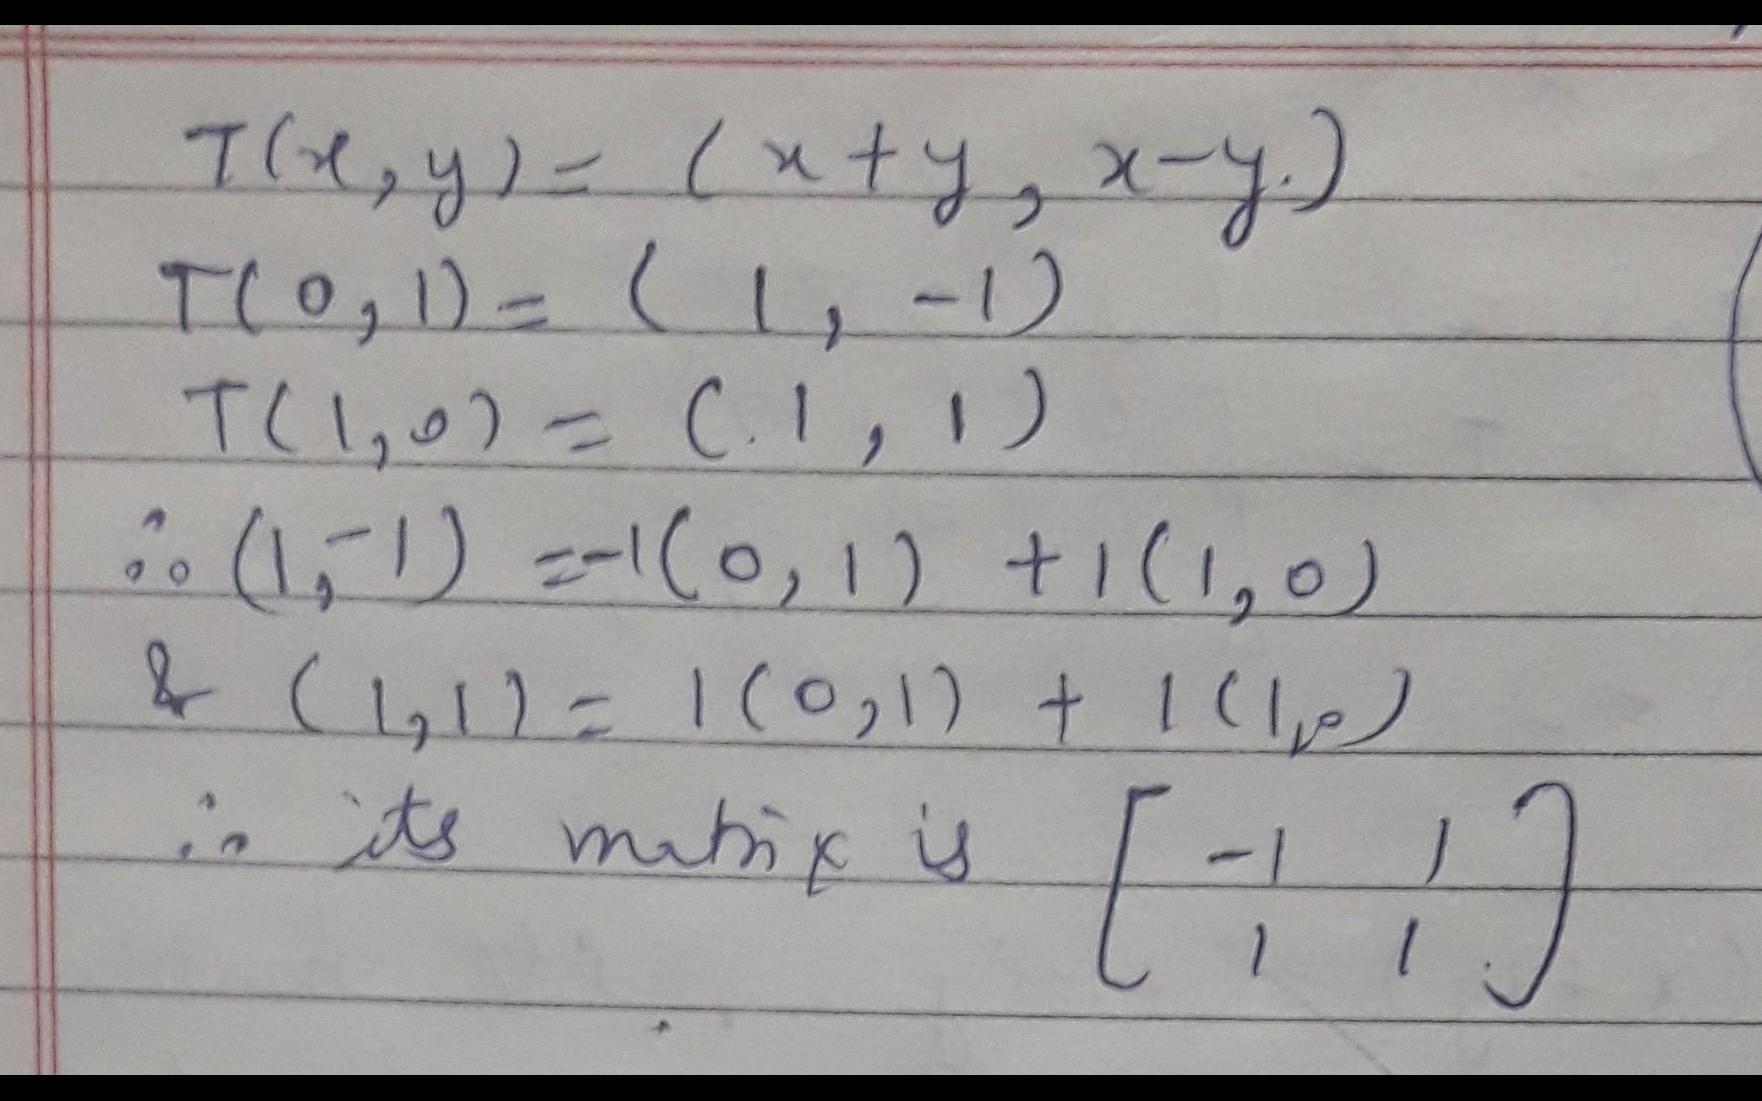 T(x, y) = (x + y, x - y.)
T(0, 1) = ( 1, -1)
T(1, 0) = (.1, 1)
∴ (1, -1) = -1(0, 1) + 1(1, 0)
& (1, 1) = 1(0, 1) + 1(1, 0)
∴ its matrix is [ -1 1
1 1 ]